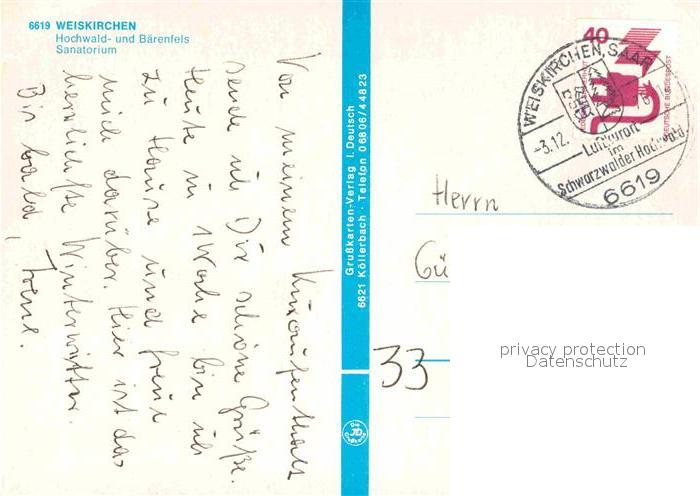 6619 WEISKIRCHEN
Hochwald- und Bärenfels
Sanatorium
Von meinem Kuraufenthalt
sende ich Dir schöne Grüße.
Heute in 1 Woche bin ich
zu Hause und freue
mich darüber. Hier ist das
herrlichste Winterwetter.
Bis bald, Irene.
Grußkarten-Verlag I. Deutsch
6621 Köllerbach · Telefon 06806/44823
40
DEUTSCHE BUNDESPOST
WEISKIRCHEN, SAAR
-3.12.
Luftkurort
im
Schwarzwälder Hochwald
6619
Herrn
Gü
33
privacy protection
Datenschutz